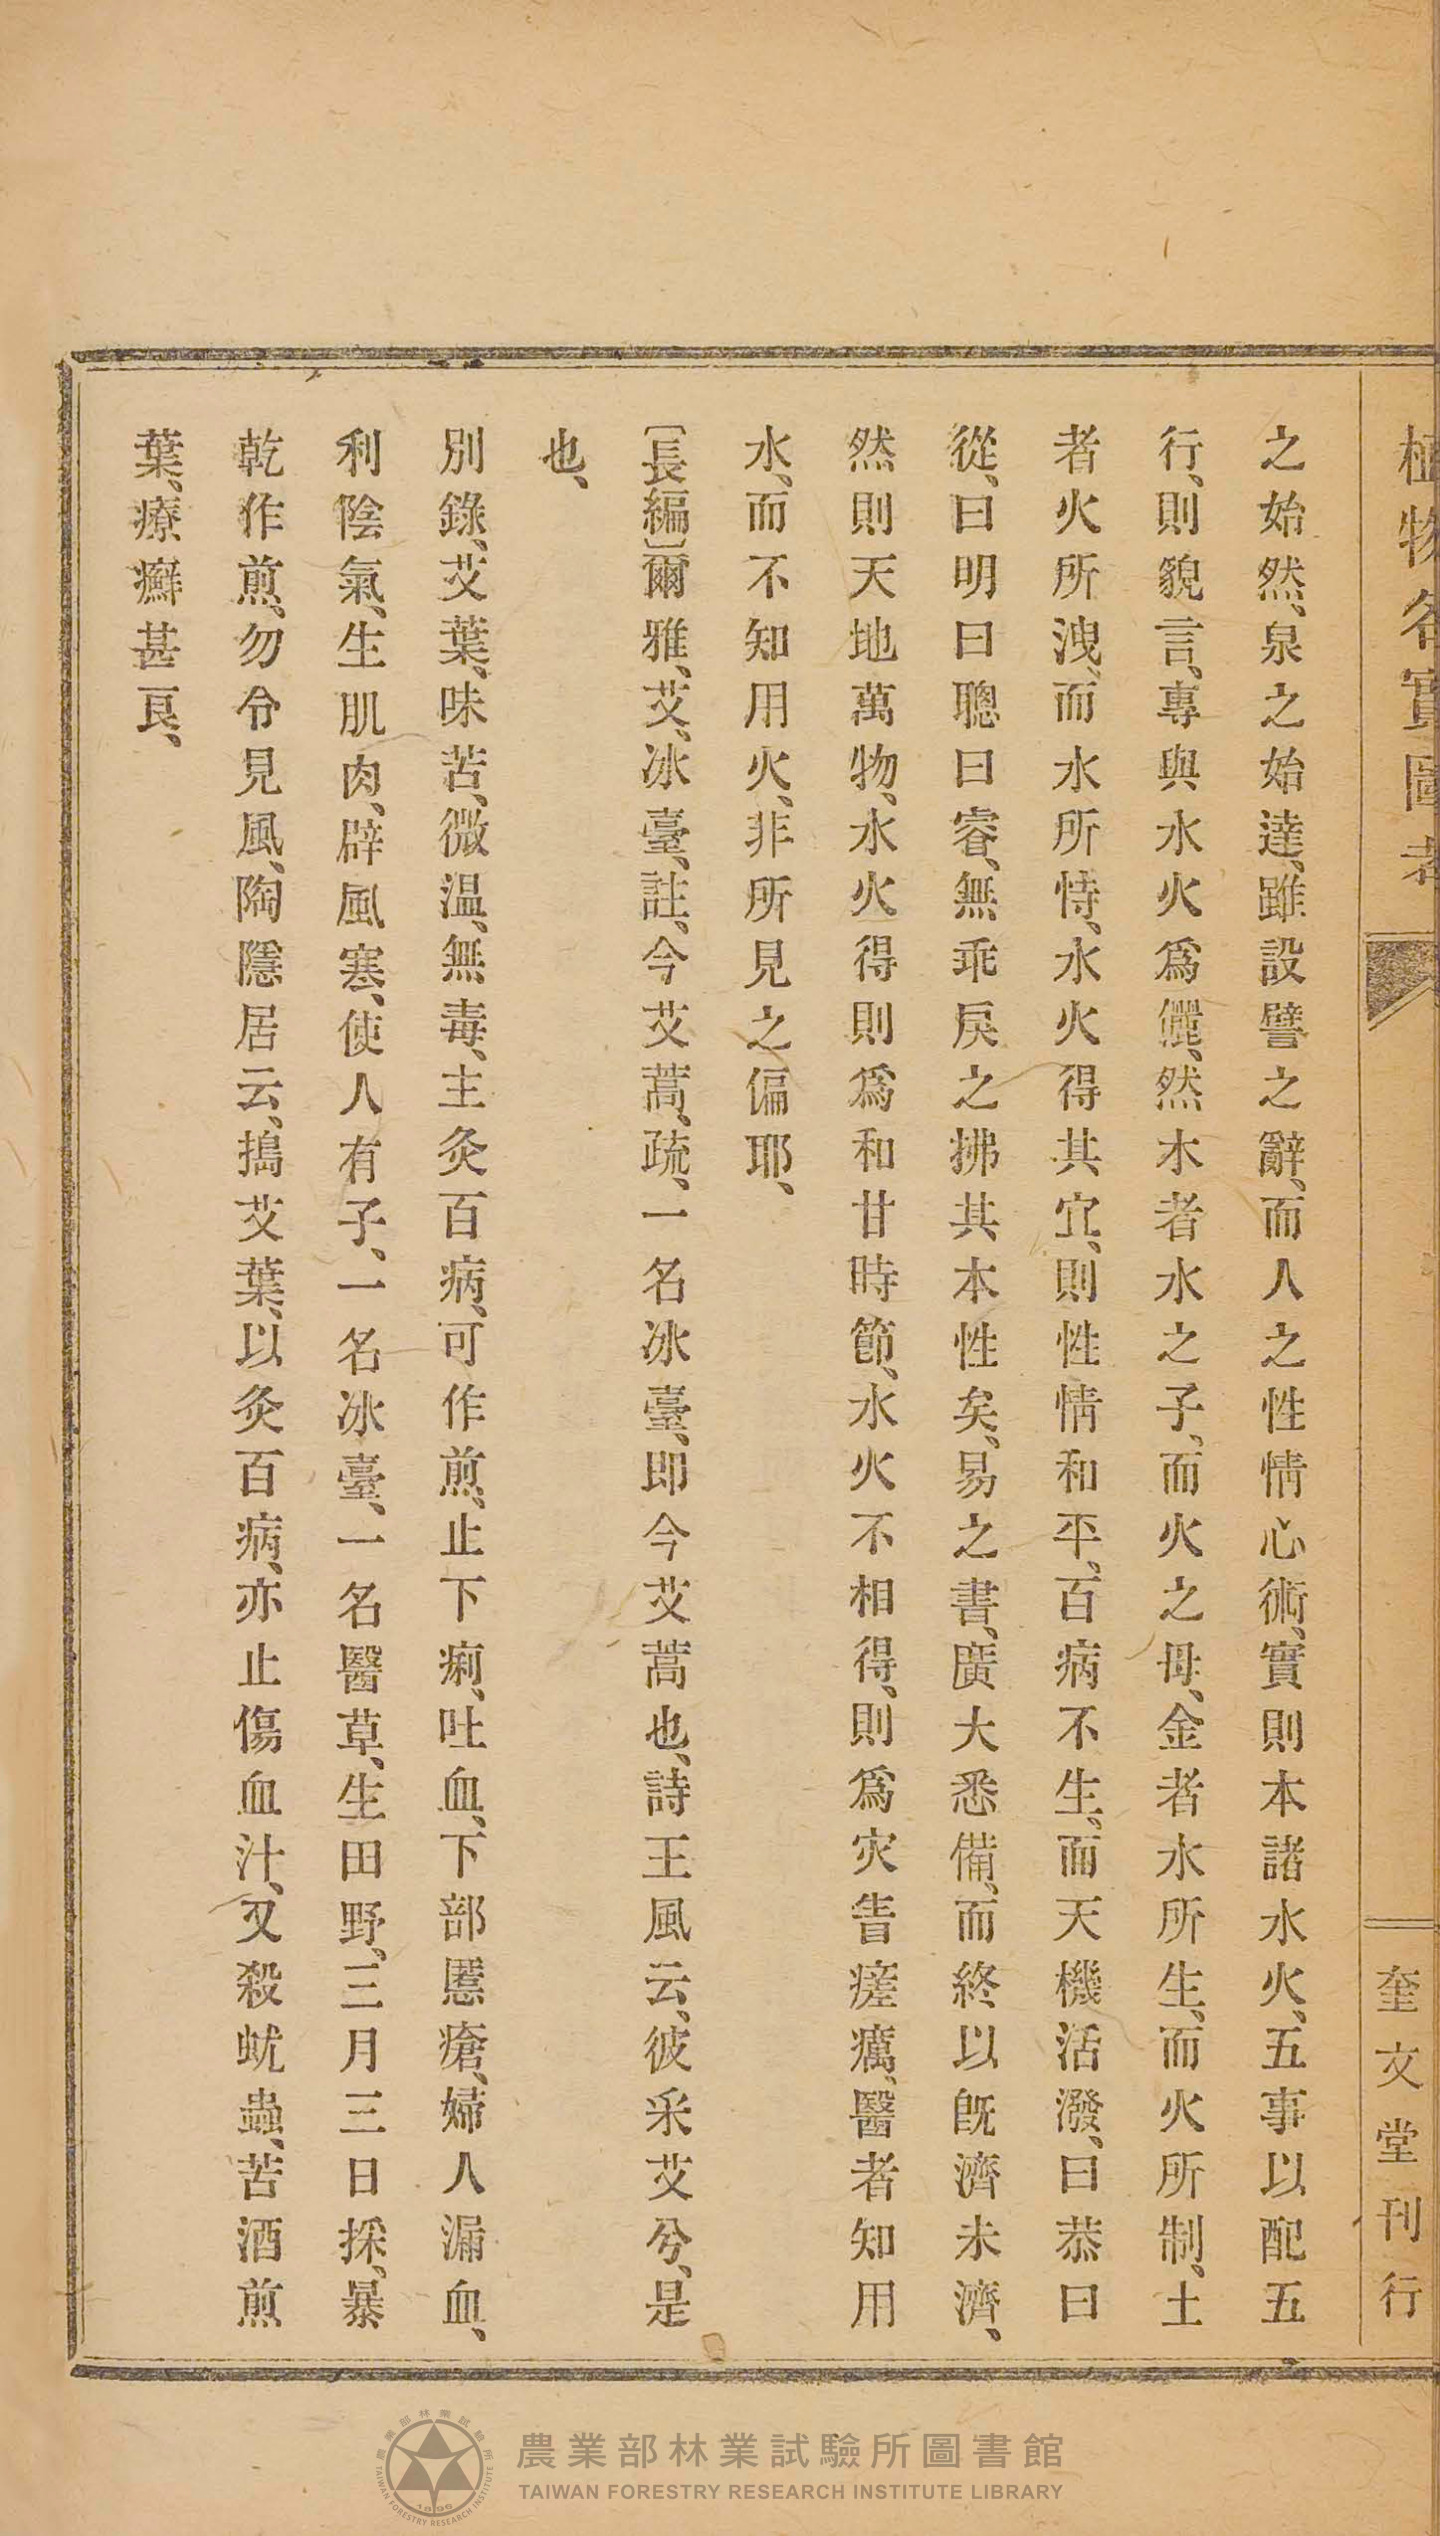 植物名實圖考
奎文堂刊行
之始然、泉之始達、雖設譬之辭、而人之性情心術、實則本諸水火、五事以配五
行、則貌言、專與水火爲儷、然木者水之子、而火之母、金者水所生、而火所制、土
者火所洩、而水所恃、水火得其宜、則性情和平、百病不生、而天機活潑、曰恭曰
從、曰明曰聰曰睿、無乖戾之拂其本性矣、易之書、廣大悉備、而終以旣濟未濟、
然則天地萬物、水火得則爲和甘時節、水火不相得、則爲灾眚瘥癘、醫者知用
水、而不知用火、非所見之偏耶、
〔長編〕爾雅、艾、冰臺、註、今艾蒿、疏、一名冰臺、即今艾蒿也、詩王風云、彼采艾兮、是
也、
別錄、艾葉、味苦、微温、無毒、主灸百病、可作煎、止下痢、吐血、下部䘌瘡、婦人漏血、
利陰氣、生肌肉、辟風寒、使人有子、一名冰臺、一名醫草、生田野、三月三日採、暴
乾作煎、勿令見風、陶隱居云、搗艾葉、以灸百病、亦止傷血汁、又殺蚘蟲、苦酒煎
葉、療癬甚良、
農業部林業試驗所圖書館
TAIWAN FORESTRY RESEARCH INSTITUTE LIBRARY
農業部林業試驗所
TAIWAN FORESTRY RESEARCH INSTITUTE
1896